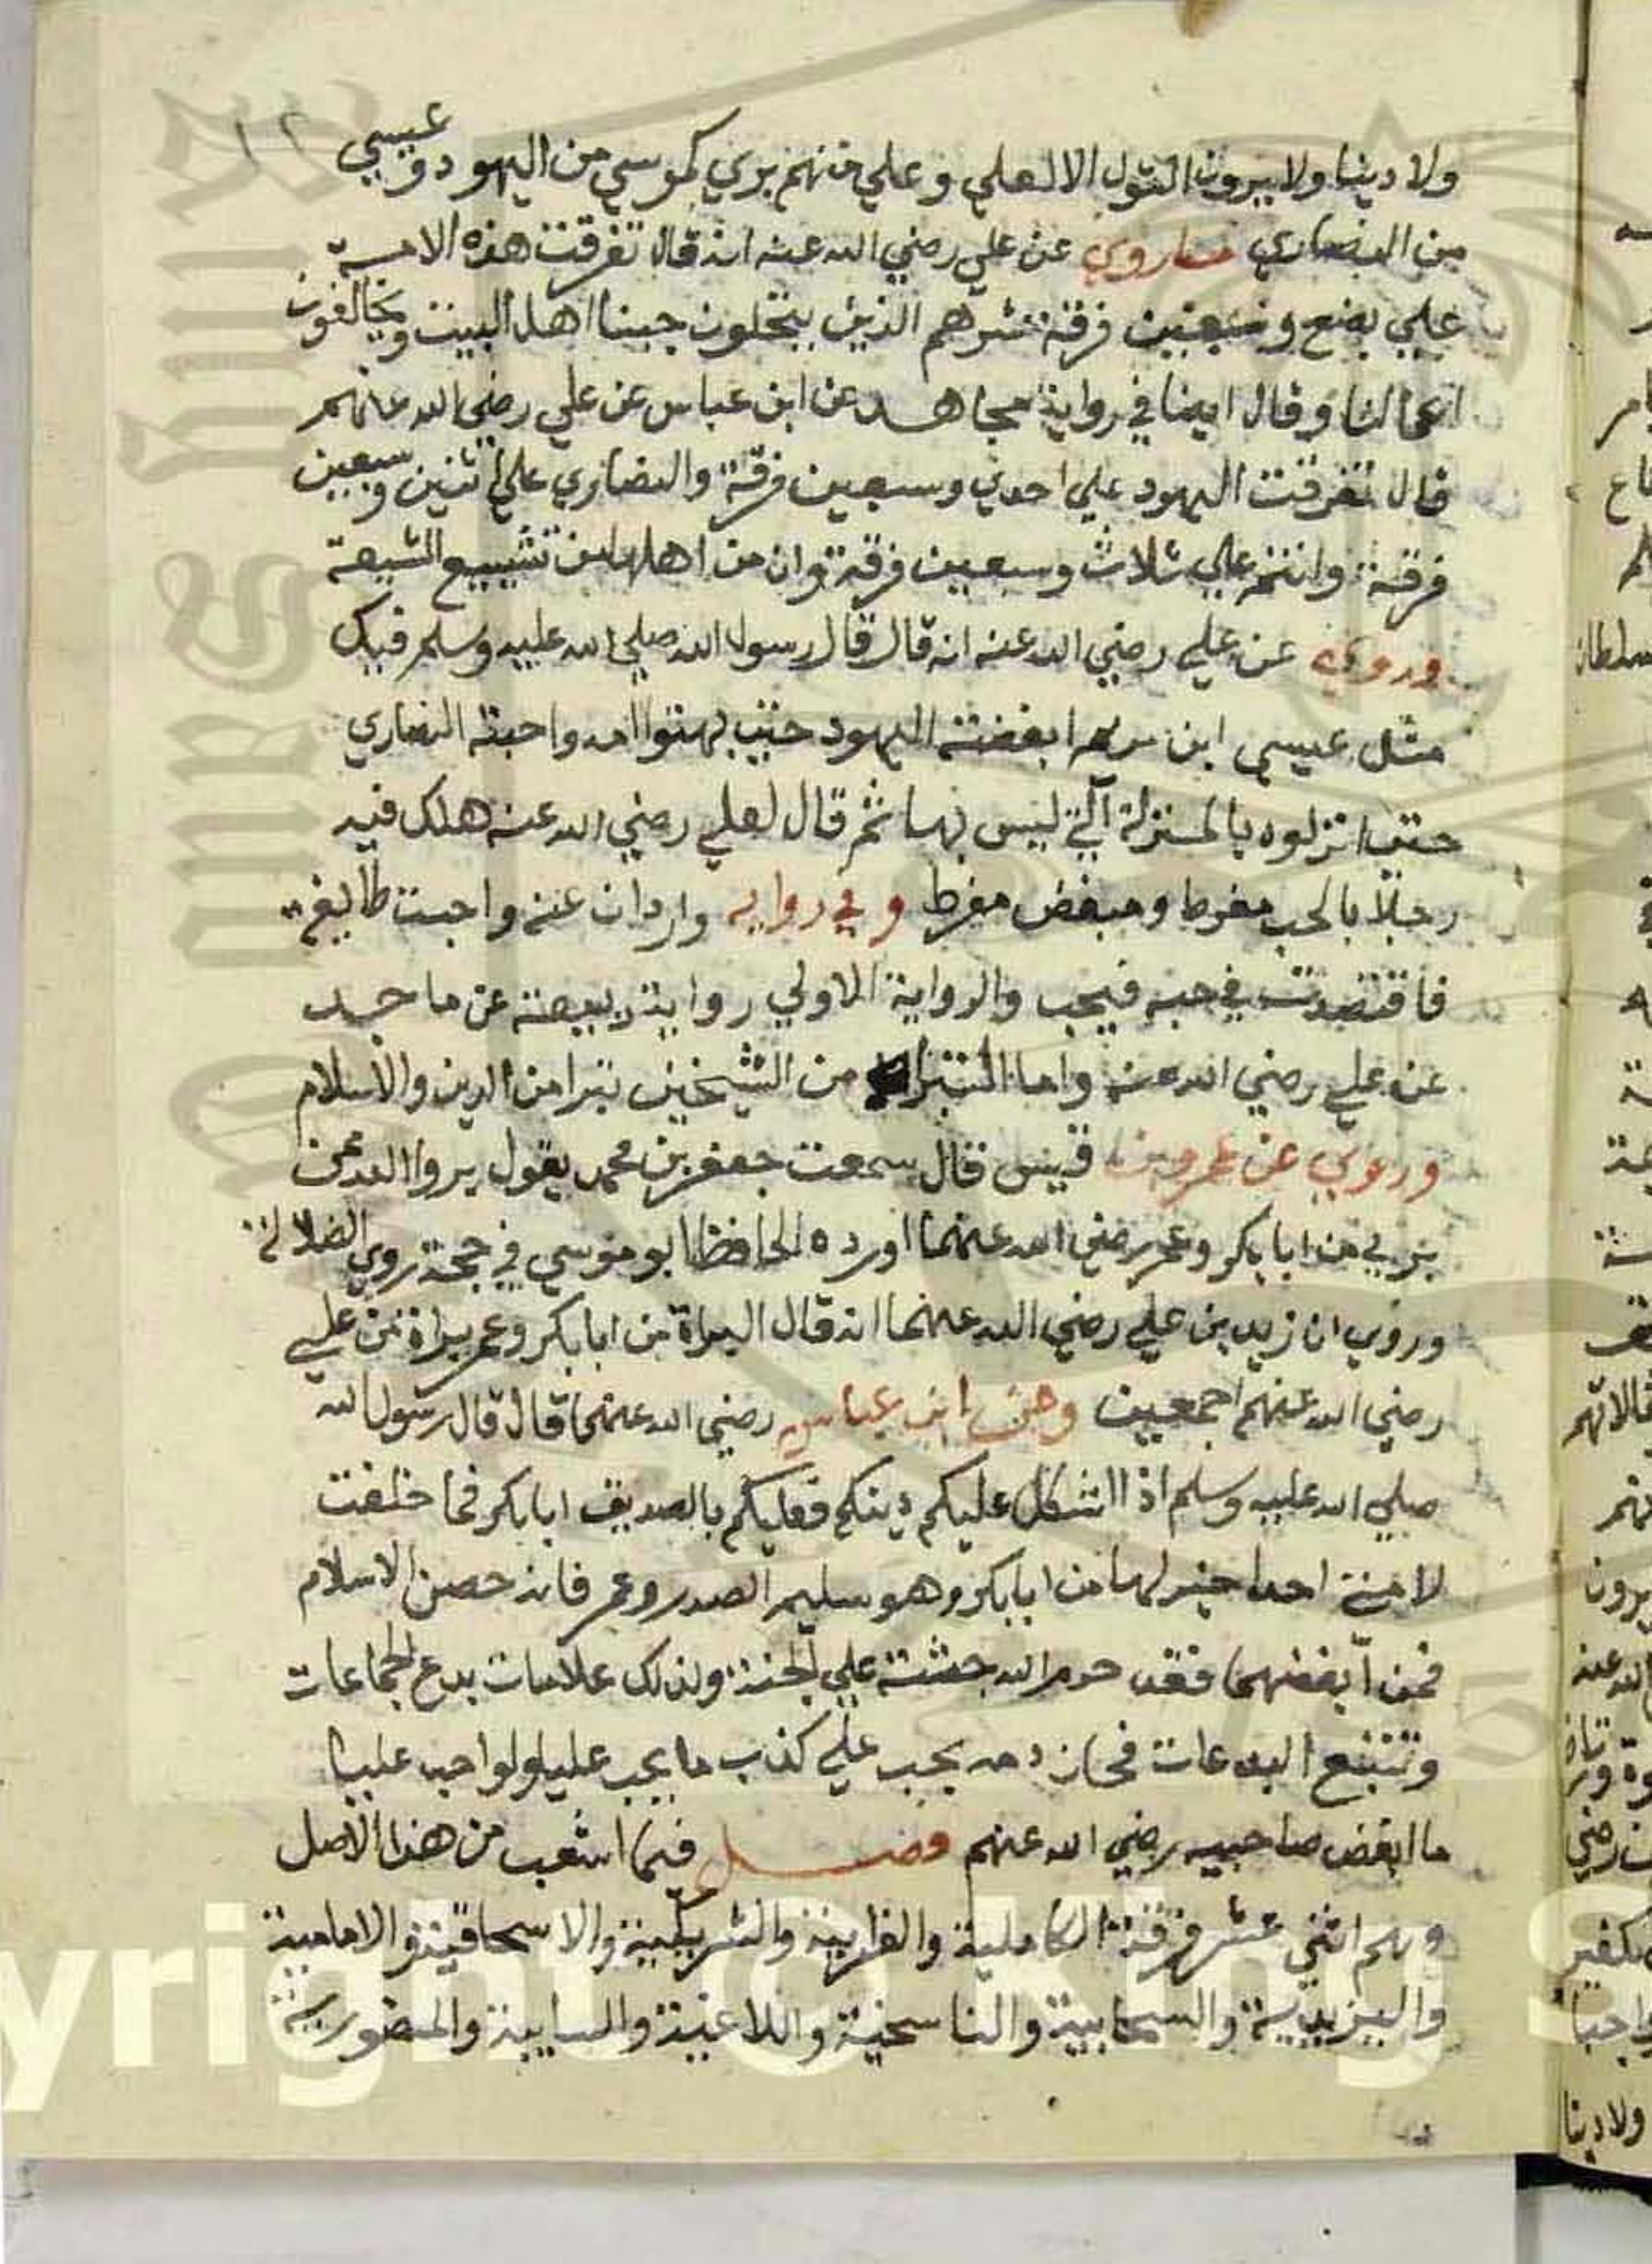 ١٢
ولا دينا ولا يرون القول الا لعلي وعلي منهم بري كموسي من اليهود وعيسي
من النصاري فما روي عن علي رضي الله عنه انه قال تفرقت هذه الامة
علي بضع وسبعين فرقة شرهم الذين ينتحلون حبنا اهل البيت ويخالفون
اعمالنا وقال ايضا في رواية مجاهد عن ابن عباس عن علي رضي الله عنهم
قال تفرقت اليهود علي احدي وسبعين فرقة والنصاري علي اثنين وسبعين
فرقة وانتم علي ثلاث وسبعين فرقة وان من تشيع الشيعة
وروي عن علي رضي الله عنه انه قال قال رسول الله صلي الله عليه وسلم فيك
مثل عيسي ابن مريم ابغضته اليهود حتي بهتوا امه واحبته النصاري
حتي انزلوه بالمنزلة التي ليس بها ثم قال لعلي رضي الله عنه هلك فيه
رجلا بالحب مفرط ومبغض مفرط وفي رواية زادان عنه واحبت طايفة
فاقتصدت في حبه فيحب والرواية الاولي رواية ربيعة عن ماجد
عن علي رضي الله عنه واما التبرا من الشيخين تبرا من الدين والاسلام
وروي عن عمرو بن قيس قال سمعت جعفر بن محمد يقول بروا الله ممن
بري من ابا بكر وعمر رضي الله عنهما اورده الحافظ ابو موسي في حجة روي الضلالة
وروي ان زيد بن علي رضي الله عنهما انه قال البراة من ابا بكر وعمر براة من علي
رضي الله عنهم اجمعين وعن ابن عباس رضي الله عنهما قال قال رسول الله
صلي الله عليه وسلم اذا اشكل عليكم دينكم فعليكم بالصديق ابا بكر فما خلفت
لامتي احدا خير لها من ابا بكر وهو سليم الصدر وعمر فانه حصن الاسلام
فمن ابغضهما فقد حرم الله جثته علي الجنة ولذلك علامات بدع الجماعات
وتتبع البدعات يجب علي كذب ما يجب
ما ابغض صاحبيه رضي الله عنهم فصل فيما اشعب من هذا الاصل
وهم اثني عشر فرقة الكاملية والغرابية والشريكية والاسحاقية والامامية
واليزيدية والسحابية والناسخية واللاعنية والسابية والمنصورية